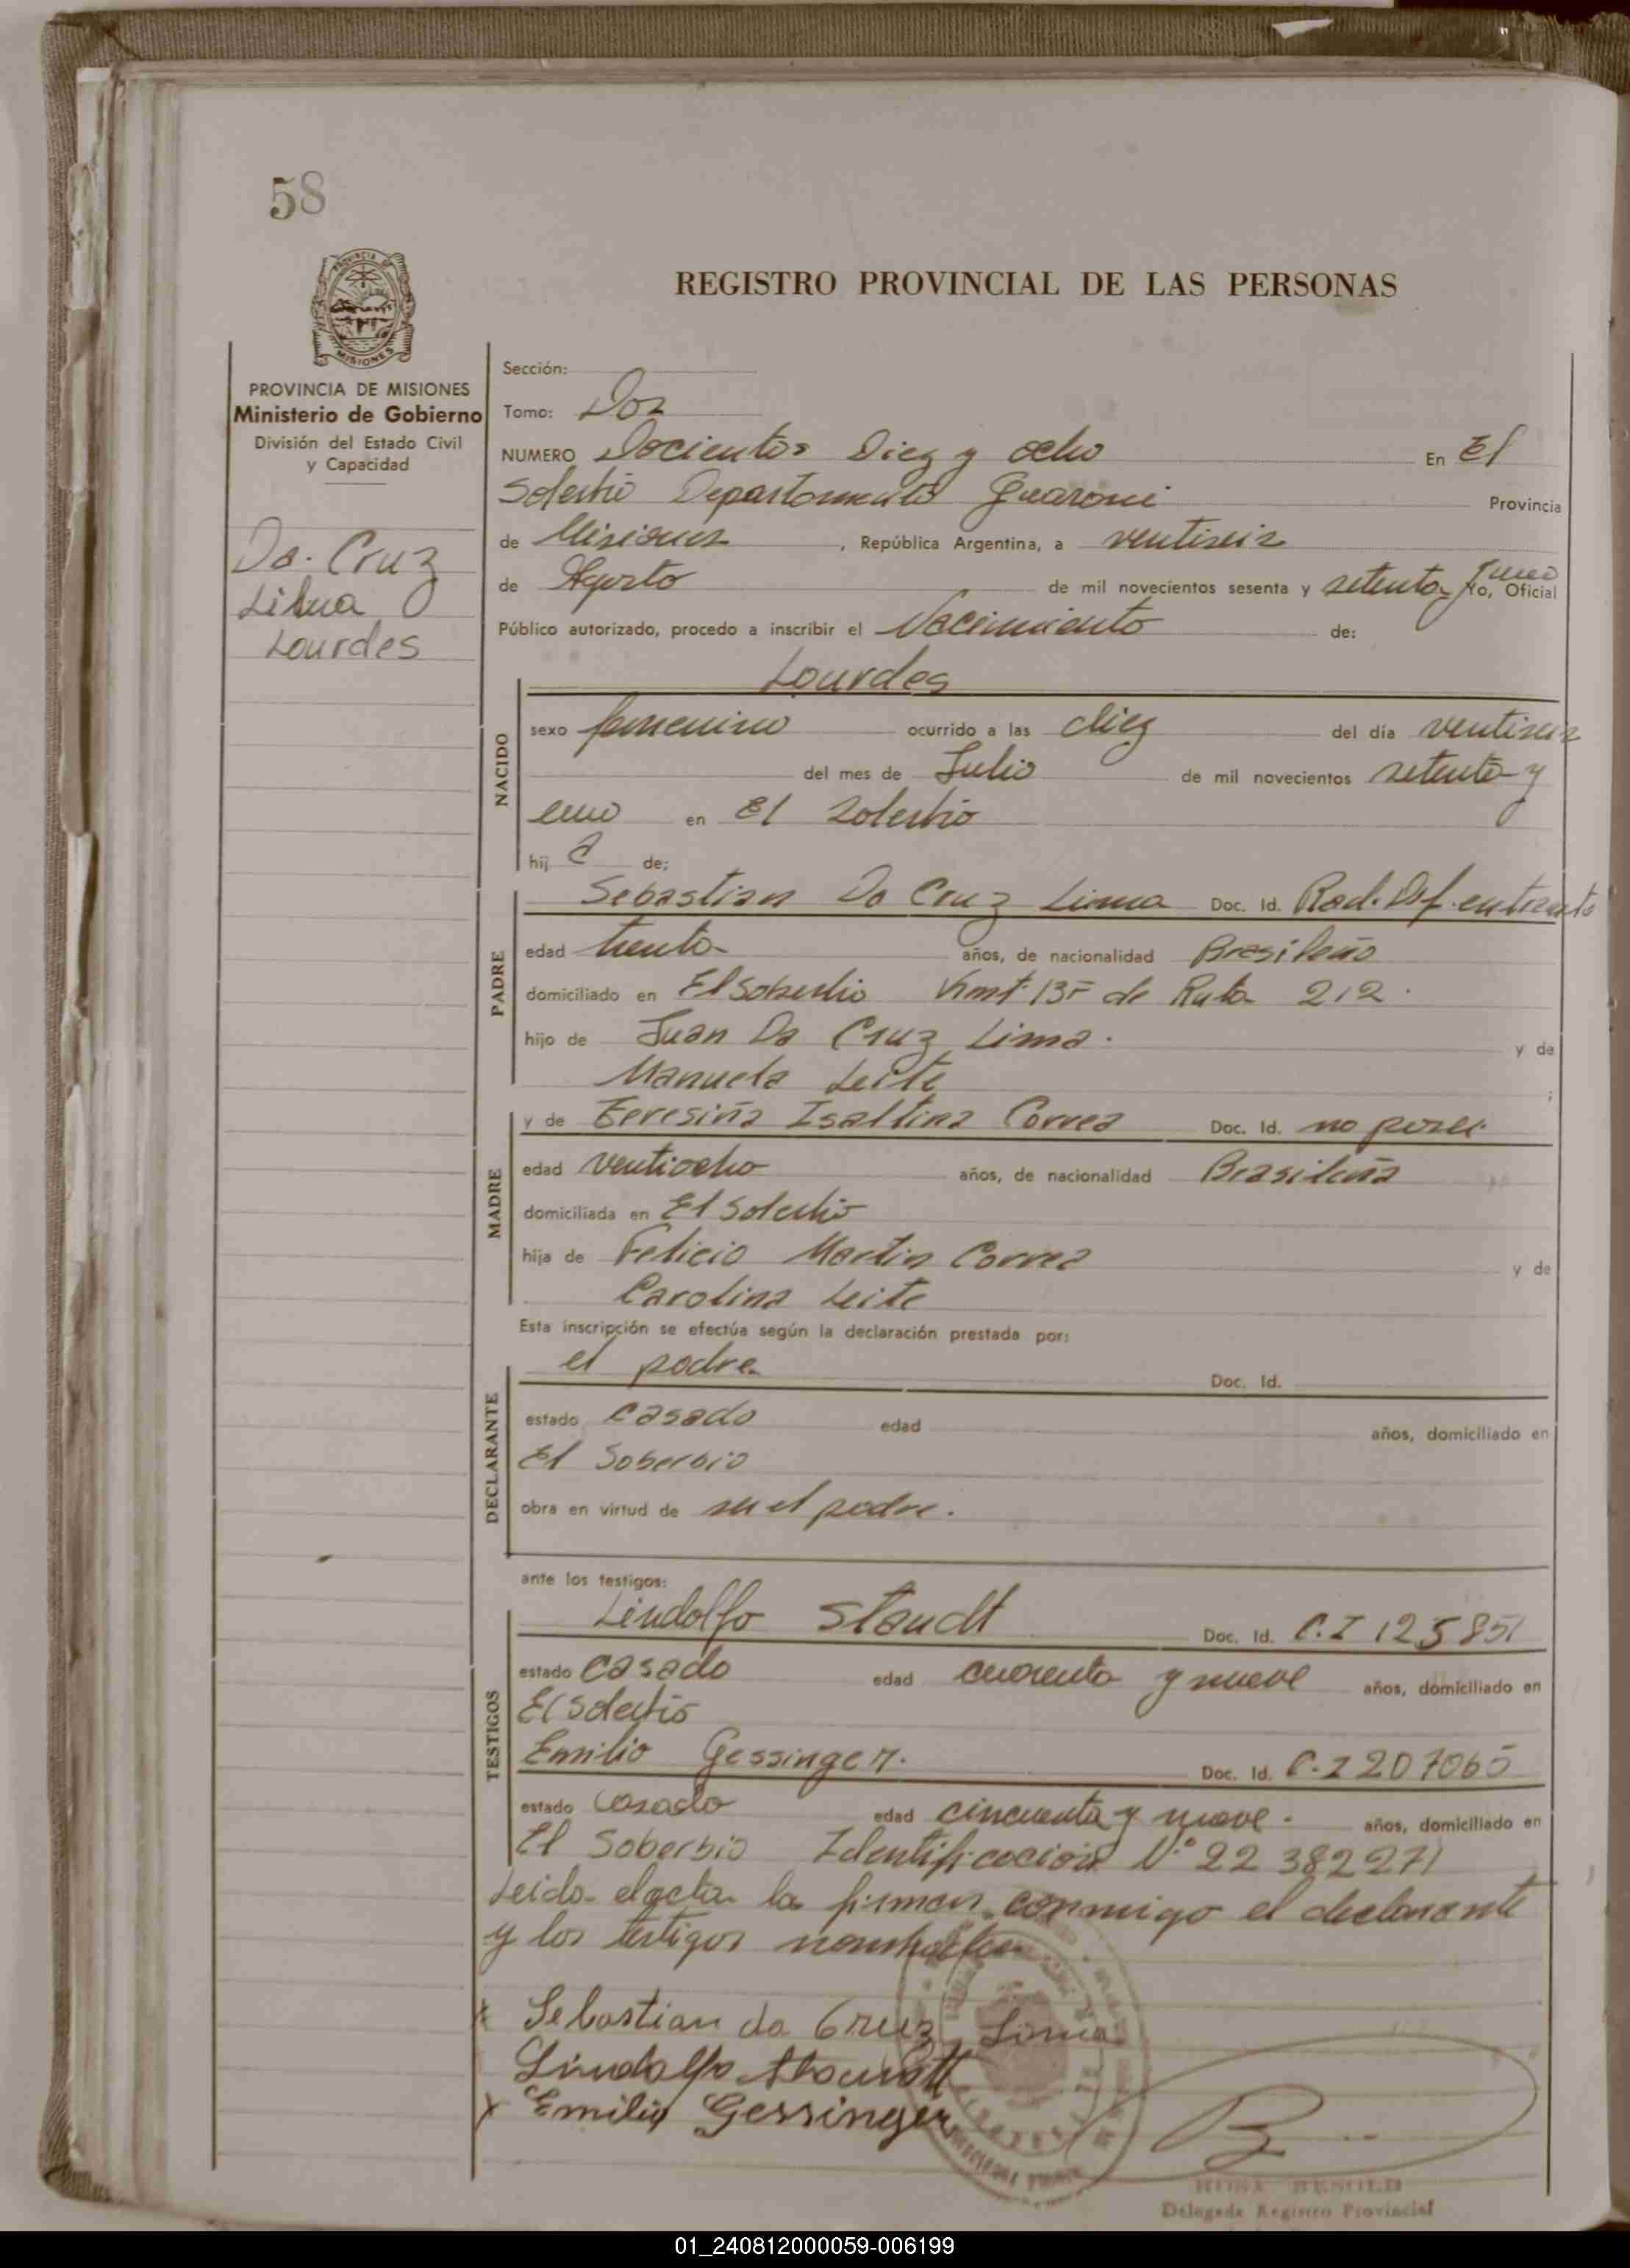 58
REGISTRO PROVINCIAL DE LAS PERSONAS
MISIONES
PROVINCIA DE MISIONES
Ministerio de Gobierno
División del Estado Civil
y Capacidad
Da. Cruz
Lima
Lourdes
Sección:
Tomo: Dos
NUMERO Docientos Diez y ocho En El
Soberbio Departamento Guarani Provincia
de Misiones, República Argentina, a ventiseis
de Agosto de mil novecientos sesenta y setenta y uno Yo, Oficial
Público autorizado, procedo a inscribir el Nacimiento de:
Lourdes
NACIDO
sexo femenino ocurrido a las diez del día ventiseis
del mes de Julio de mil novecientos setenta y
uno en El Soberbio
hij a de:
PADRE
Sebastian Da Cruz Lima Doc. Id. Rad. Def. entramite
edad trenta años, de nacionalidad Brasileño
domiciliado en El Soberbio Kmt. 15 de Ruta 212.
hijo de Juan Da Cruz Lima. y de
Manuela Leite ;
MADRE
y de Teresiña Isaltina Correa Doc. Id. no posee
edad ventiocho años, de nacionalidad Brasileña
domiciliada en El Soberbio
hija de Felicio Martin Correa y de
Carolina Leite
Esta inscripción se efectúa según la declaración prestada por:
DECLARANTE
el padre Doc. Id.
estado casado edad años, domiciliado en
El Soberbio
obra en virtud de ser el padre.
ante los testigos:
TESTIGOS
Lindolfo Staudt Doc. Id. C.I 125851
estado casado edad cuarenta y nueve años, domiciliado en
El Soberbio
Emilio Gessinger. Doc. Id. C.I 207065
estado casado edad cincuenta y nueve. años, domiciliado en
El Soberbio Identificación N° 22 382271
Leida el acta la firman conmigo el declarante
y los testigos nombrados
x Sebastian da Cruz Lima
Lindolfo Staudt
x Emilio Gessinger
Delegada Registro Provincial
01_240812000059-006199